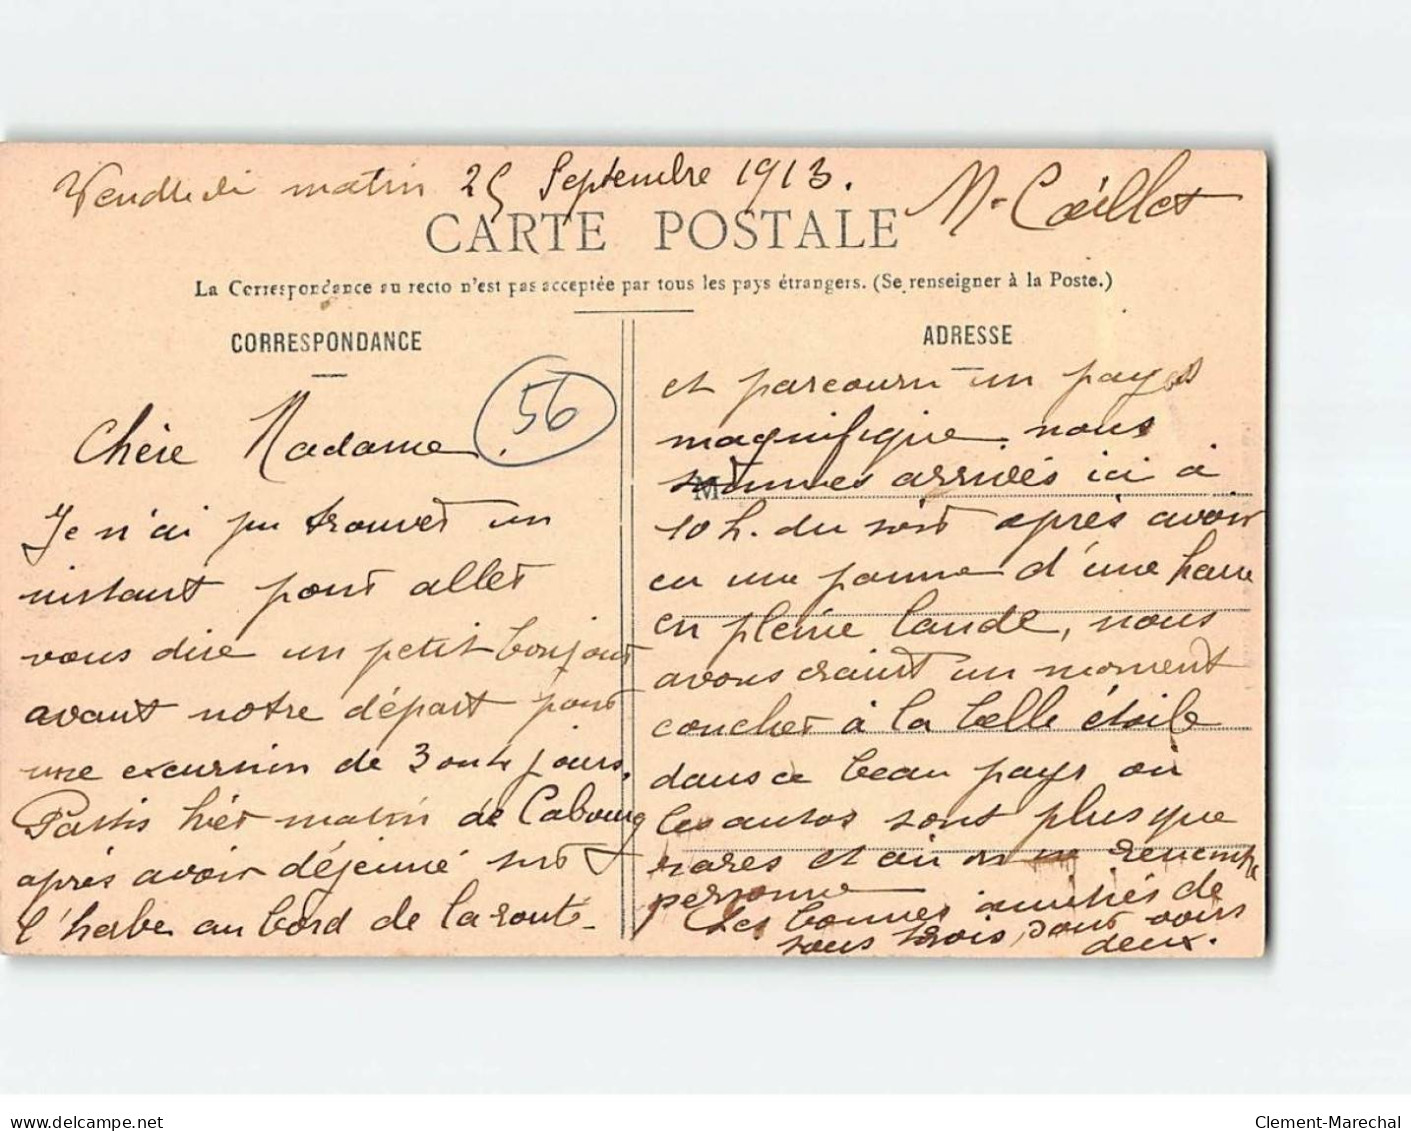 Vendredi matin 25 Septembre 1913.
M. Caillet
CARTE POSTALE
La Correspondance au recto n'est pas acceptée par tous les pays étrangers. (Se renseigner à la Poste.)
CORRESPONDANCE
56
Chère Madame.
Je n'ai pu trouver un
instant pour aller
vous dire un petit bonjour
avant notre départ pour
une excursion de 3 ou 4 jours.
Partis hier matin de Cabourg
après avoir déjeuné sur
l'herbe au bord de la route
ADRESSE
et parcouru un pays
magnifique. nous
M
sommes arrivés ici à
10 h. du soir après avoir
eu une panne d'une heure
en pleine lande, nous
avons craint un moment
coucher à la belle étoile
dans ce beau pays où
les autos sont plus que
rares et où on ne rencontre
personne
Les bonnes amitiés de
nous trois pour vous
deux.
delcampe.net
Clement-Marechal